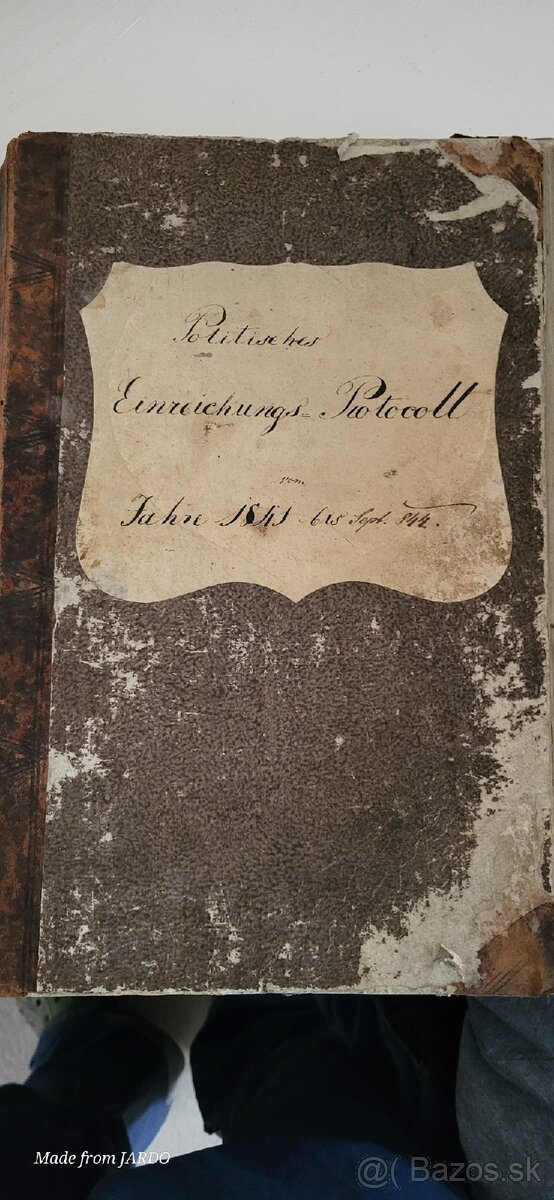 Politisches
Einreichungs-Protocoll
vom
Jahre 1841 bis Sept. 844.
Made from JARDO
@( Bazos.sk